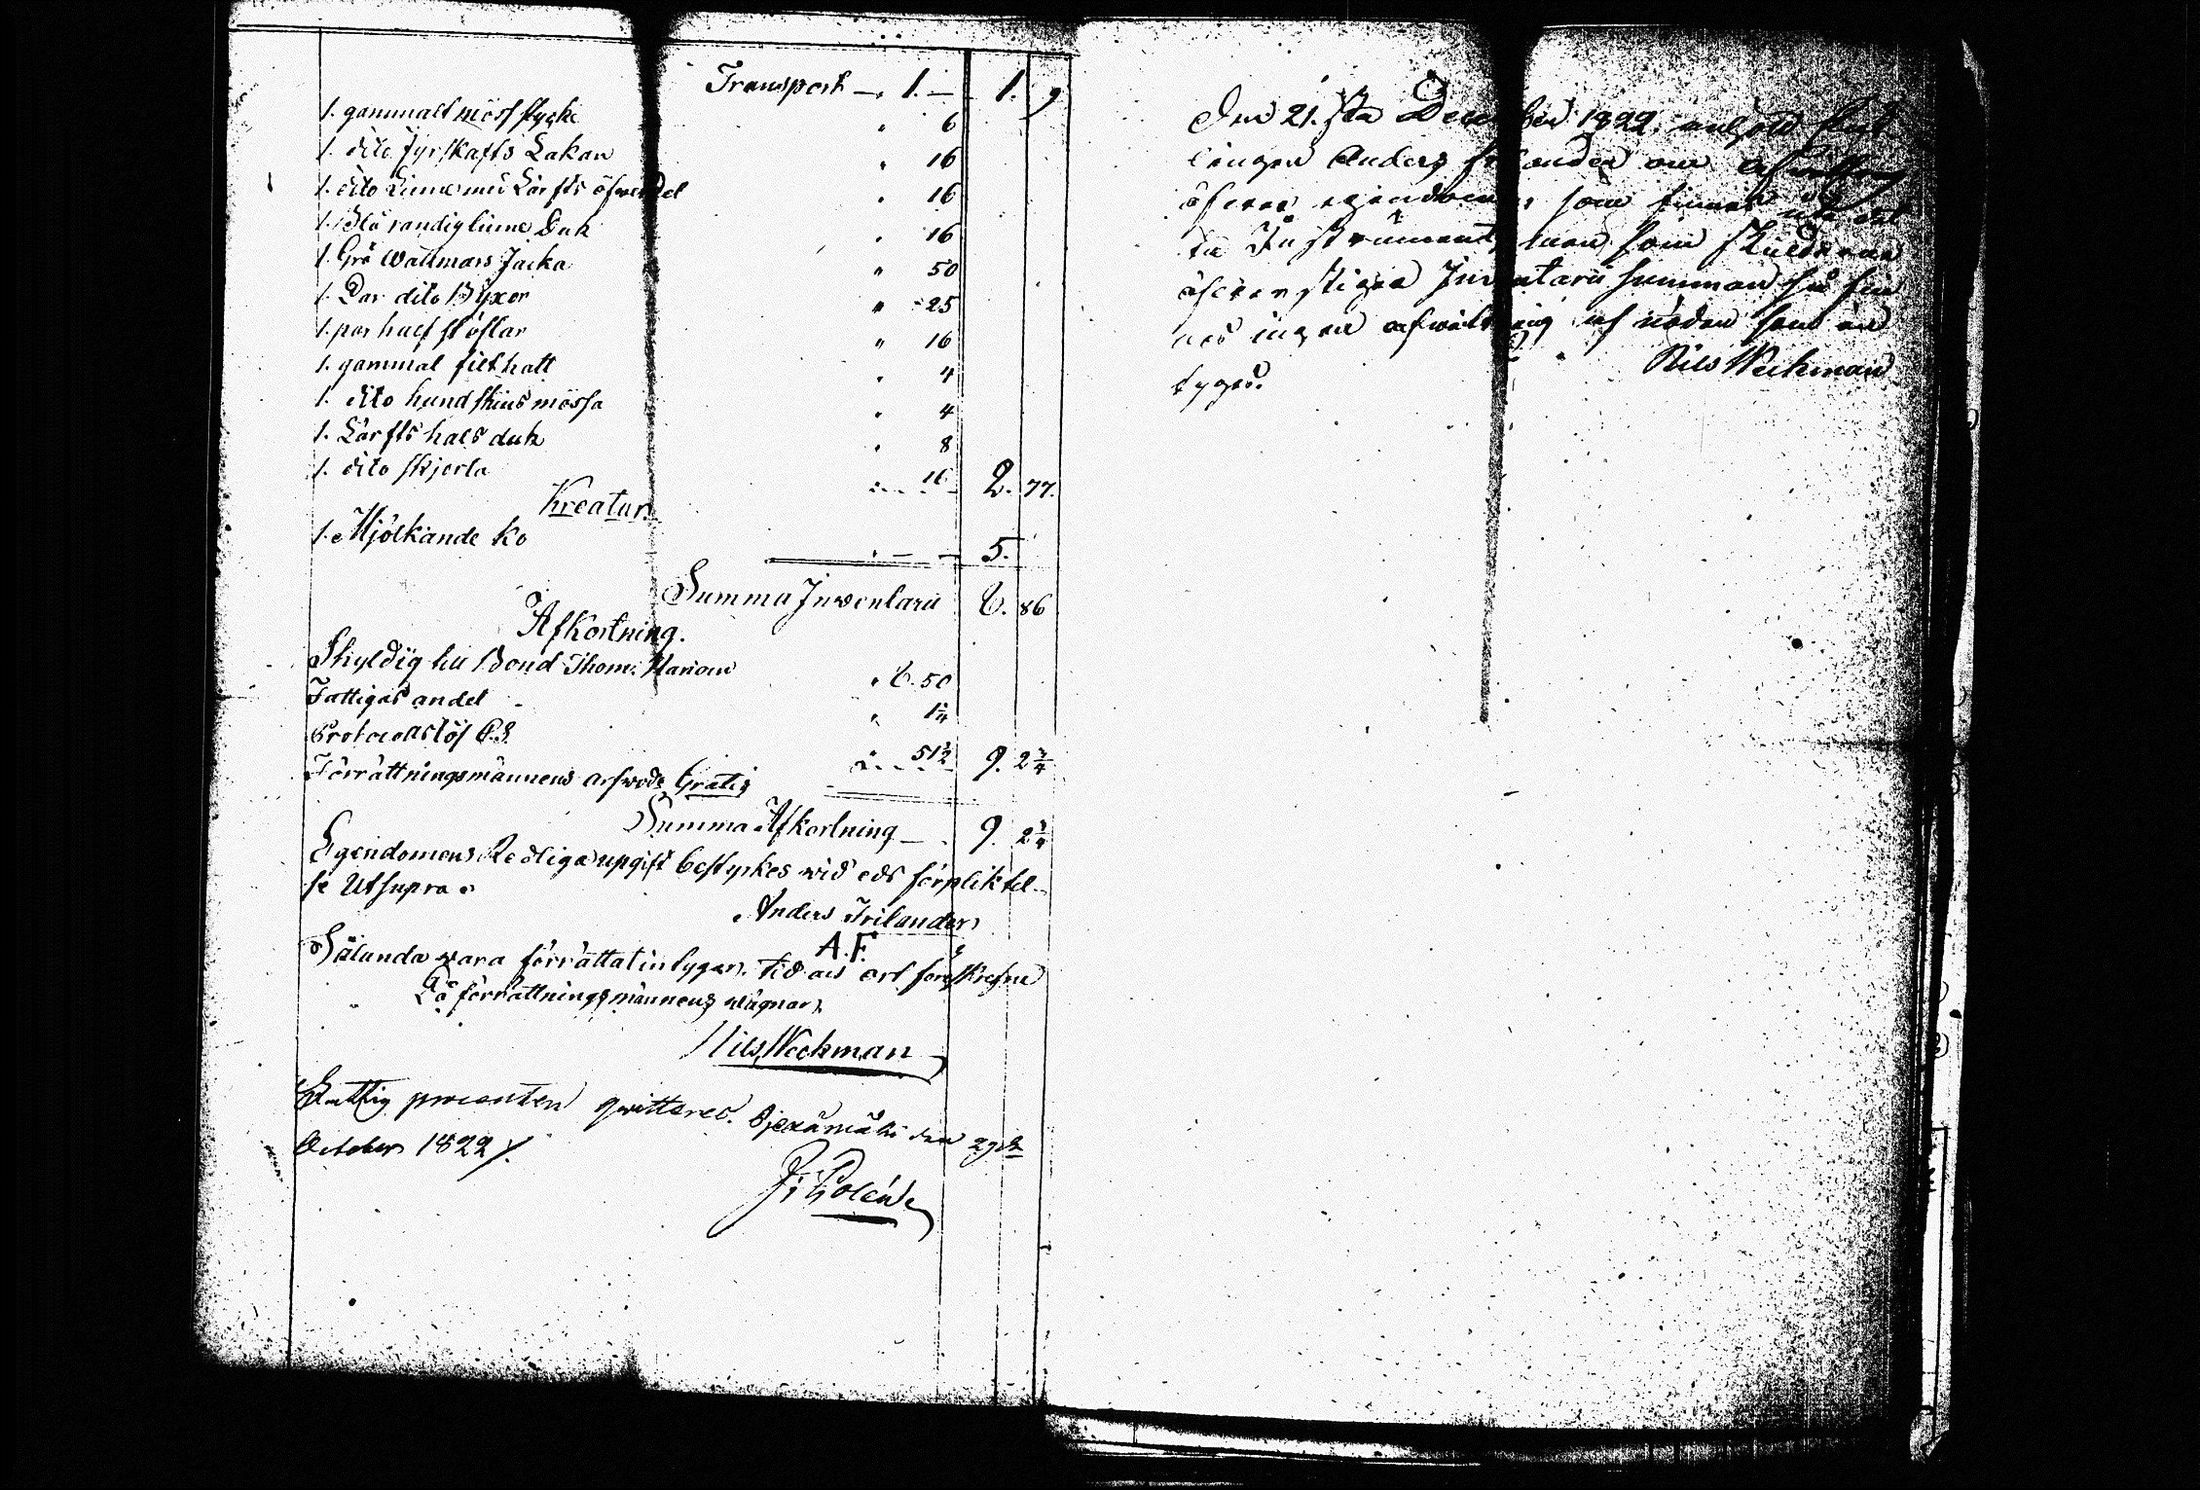 Transport — 1. — 1. 9
1. gammalt mösstycke " 6
1. dito fyrskafts Lakan " 16
1. dito Linne med Lärfts öfverdel " 16
1. Blå randig linne Duk " 16
1. Grå Wallmars Jacka " 50
1. Par dito Byxor " 25
1. par half stöflar " 16
1. gammal filt hatt " 4
1. dito hundskins mössa " 4
1. Lärfts hals duk " 8
1. dito skjorta " 16 2. 77.
Kreatur
1. Mjölkande Ko " — — 5.
Summa Inventarii 8. 86
Afkortning.
Skyldig till Bond Thom: " 8. 50
Fattigas andel " 1 1/4
Protocolls lös C.S. " 51 1/2 9. 2 3/4
Förrättningsmännens arfvode Gratis
Summa Afkortning — 9. 2 3/4
Egendomens Redliga upgift bestyrkes wid eds förpliktel-
se Ut supra.
Anders Frilander
A.F.
Sålunda vara förrättat intygar. Tid och ort föreskrefne
På förrättningsmännens wägnar.
Nils Weckman
Fattig procenten qvitteras. den 29de
October 1822 /.
Den 21.sta December 1822, anhöld
lingen Anders Frilander om afwittring
öfver egendomen, som finnes uti
ta Instrument, men som skulderna
öfverstiger Inventarii summan så fin
nes ingen afwittring af nöden som in
tygas. Nils Weckman